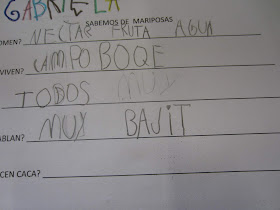 GABRIELA
SABEMOS DE MARIPOSAS
OMEN? NECTAR FRUTA AGUA
VIVEN? CAMPO BOQE
TODOS MUY
ABLAN? MUY BAJIT
CEN CACA?